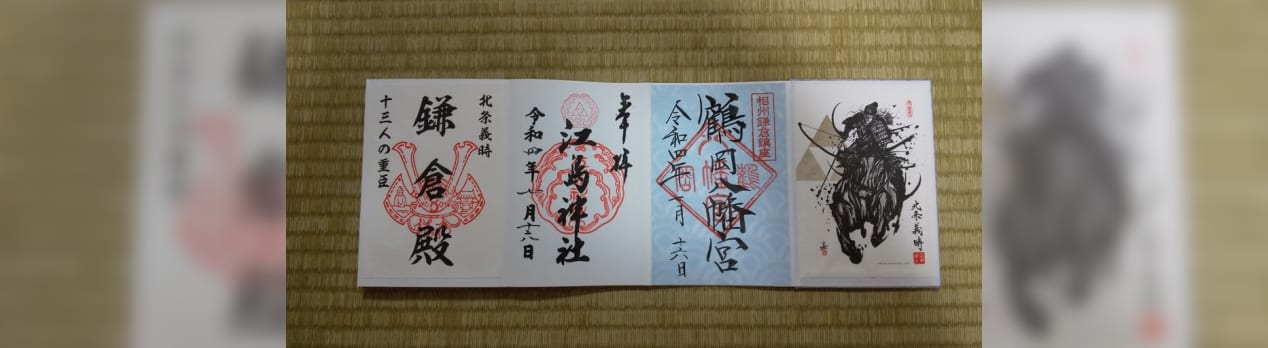 北条義時
鎌倉殿
十三人の重臣
奉拝
江島神社
令和四年
月
日
相州鎌倉鎮座
鶴岡八幡宮
令和四年
月十六日
北条義時